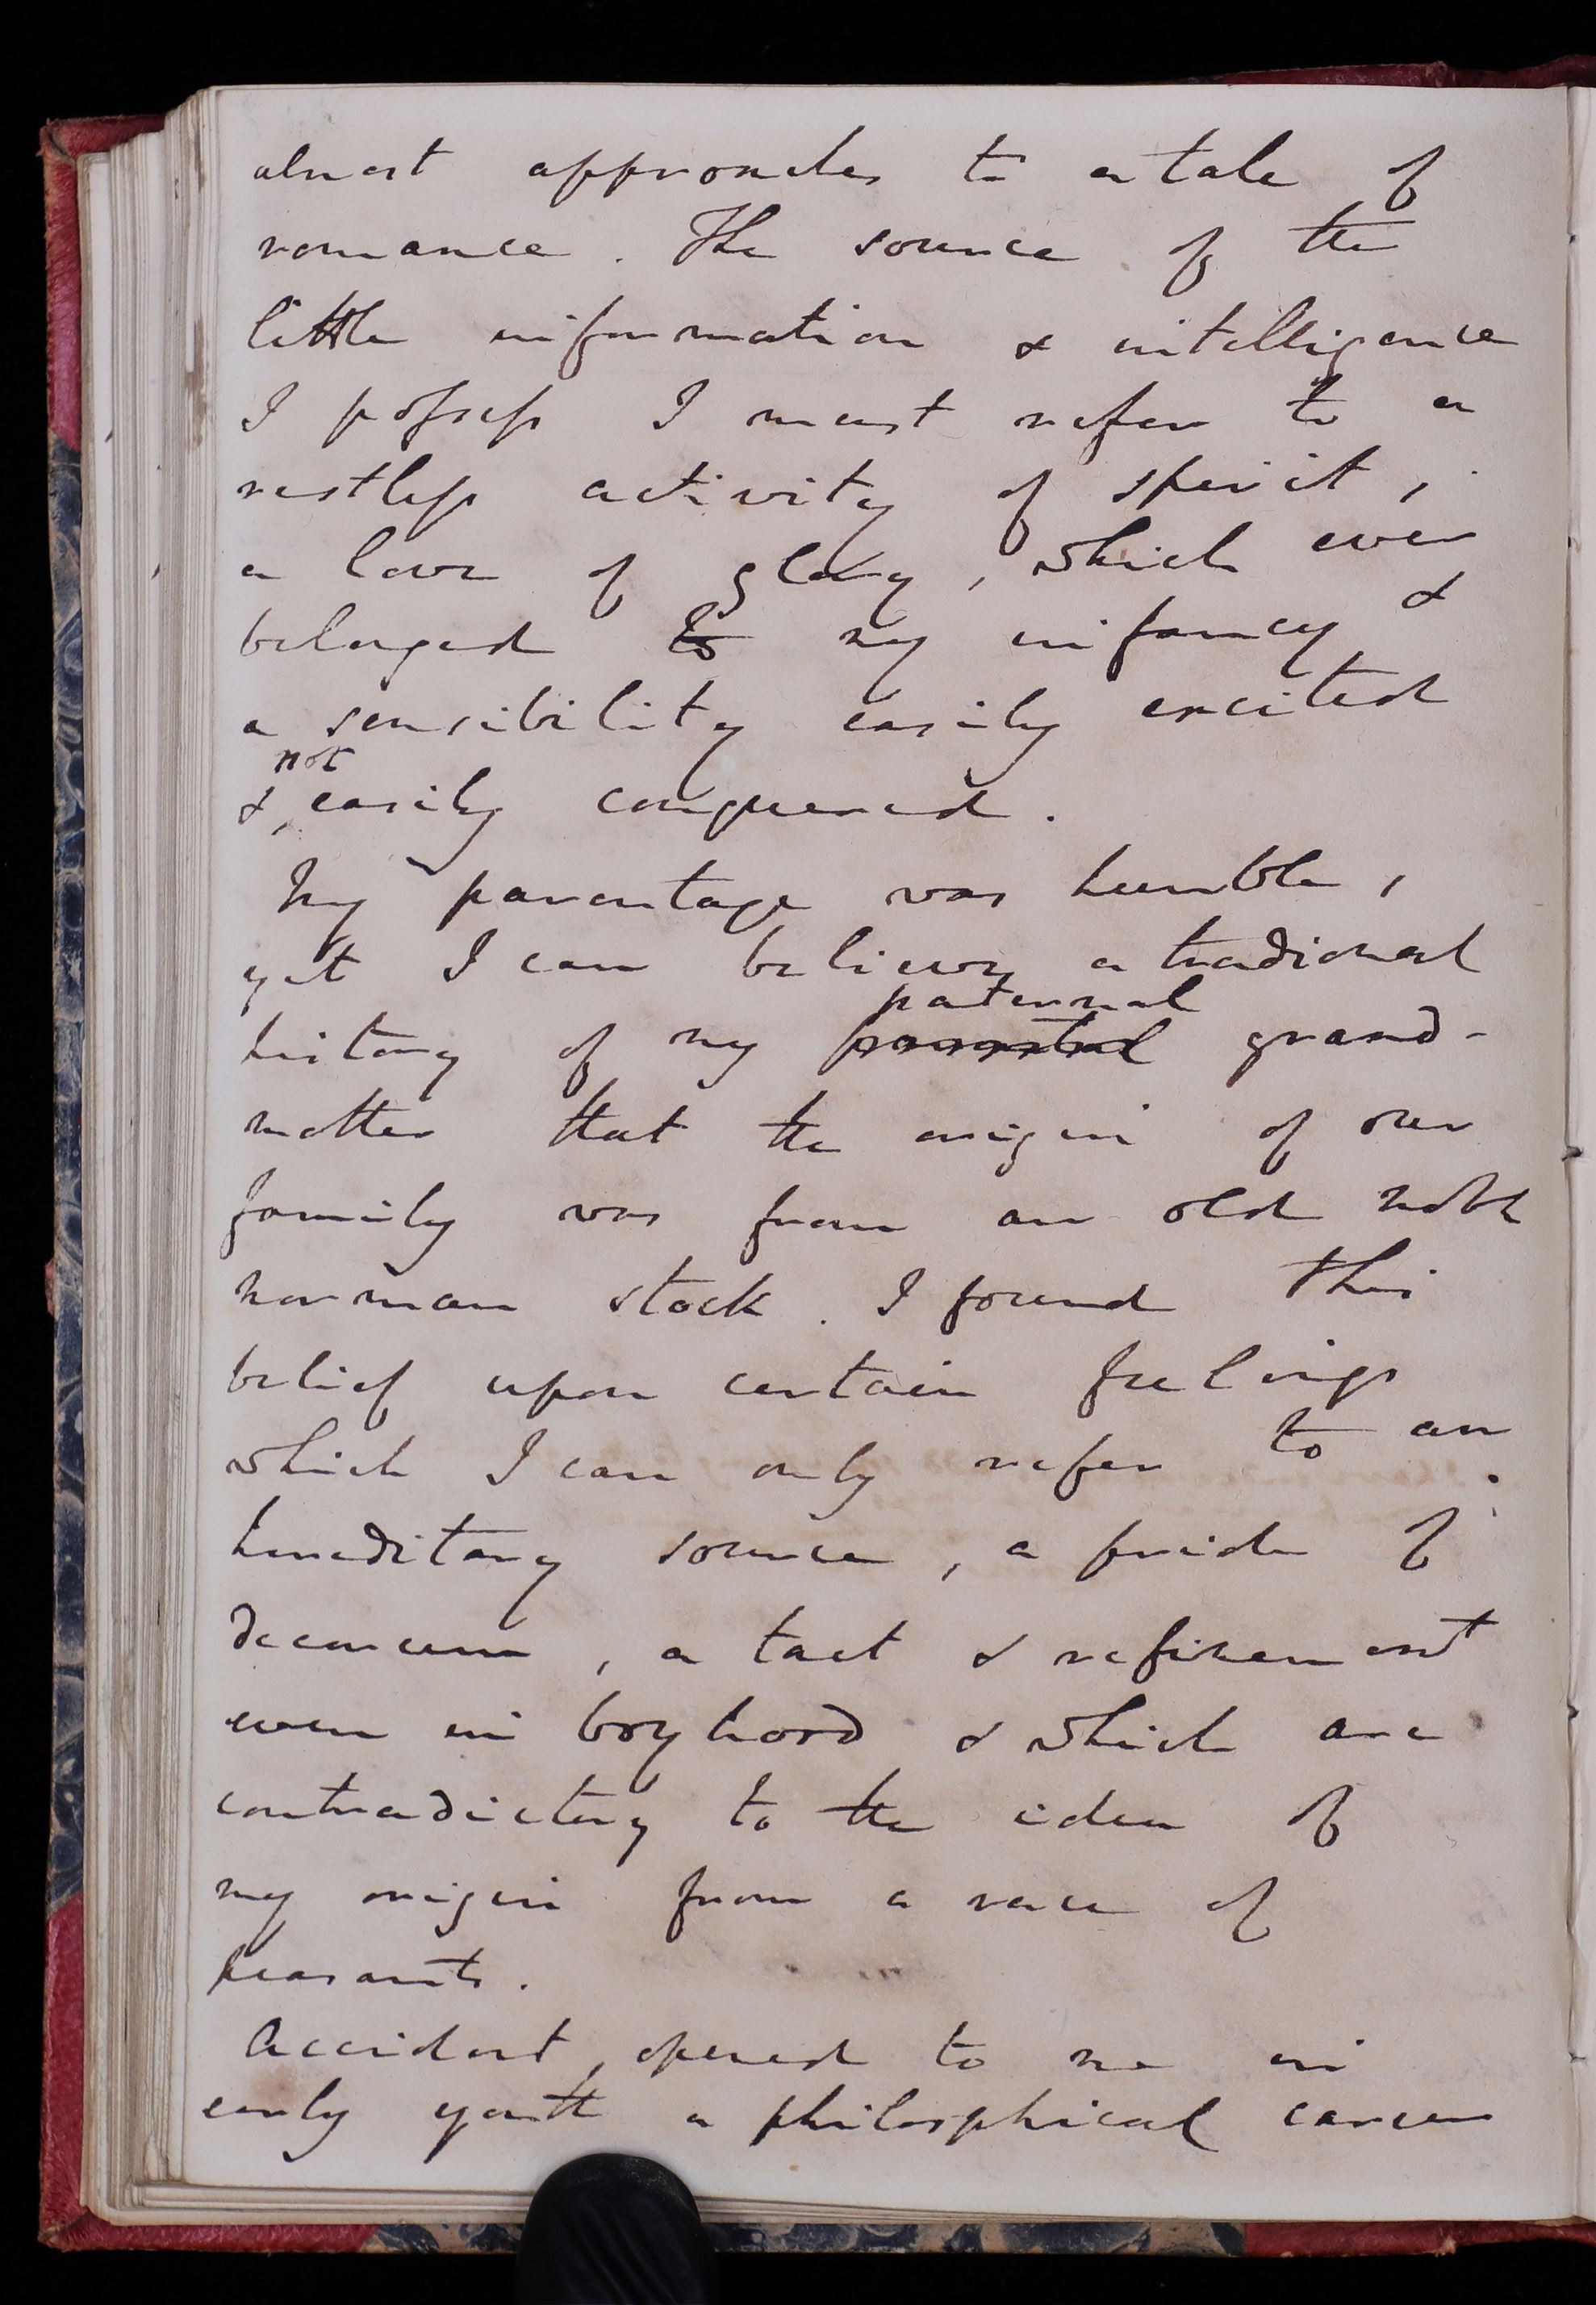 almost approaches to a tale of
romance. The source of the
little information & intelligence
I possess I must refer to a
restless activity of spirit,
a love of glory, which ever
belonged to my infancy &
a sensibility easily excited
not
& easily conquered.
My parentage was humble,
yet I can believe a tradional
paternal
history of my grand-
mother that the origin of our
family was from an old noble
norman stock. I found this
belief upon certain feelings
which I can only refer to an
hereditary source, a pride of
decorum, a tact & refinement
even in boyhood & which are
contradictory to the idea of
my origin from a race of
peasants.
Accident, opened to me in
early youth a philosphical career